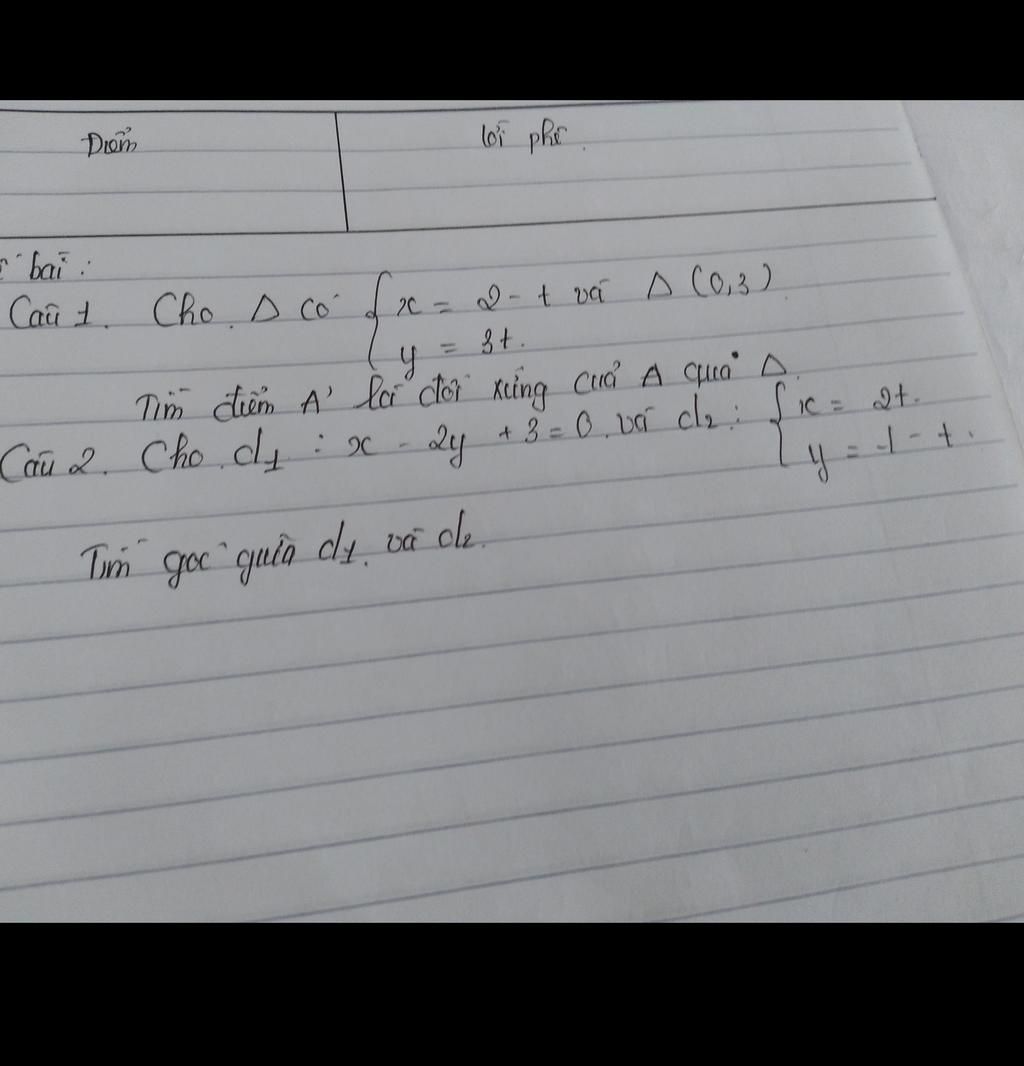 Điểm
lời phê.
bài:
Câu 1. Cho Δ có { x = 2 - t và Δ (0,3)
y = 3t.
Tìm điểm A' là đối xứng của A qua Δ.
Câu 2. Cho d1 : x - 2y + 3 = 0. và d2 : { x = 2t.
y = -1 - t.
Tìm góc giữa d1. và d2.